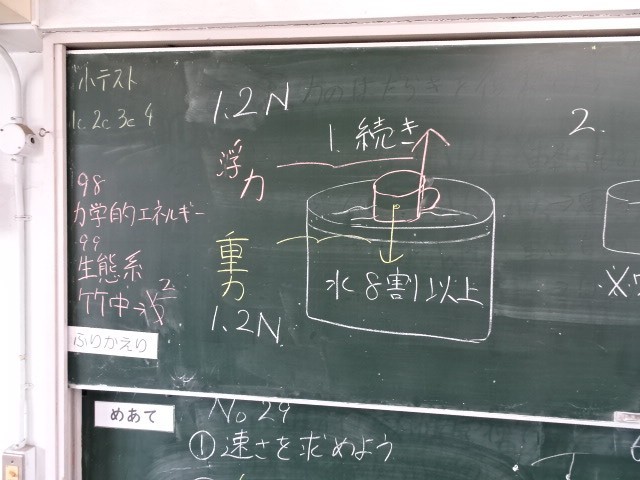 小テスト
1c 2c 3c 4
98
力学的エネルギー
99
生態系
竹中→
2
ふりかえり
1.2N
浮力
重力
1.2N
1. 続き
水8割以上
2.
※
めあて
No 29
①速さを求めよう